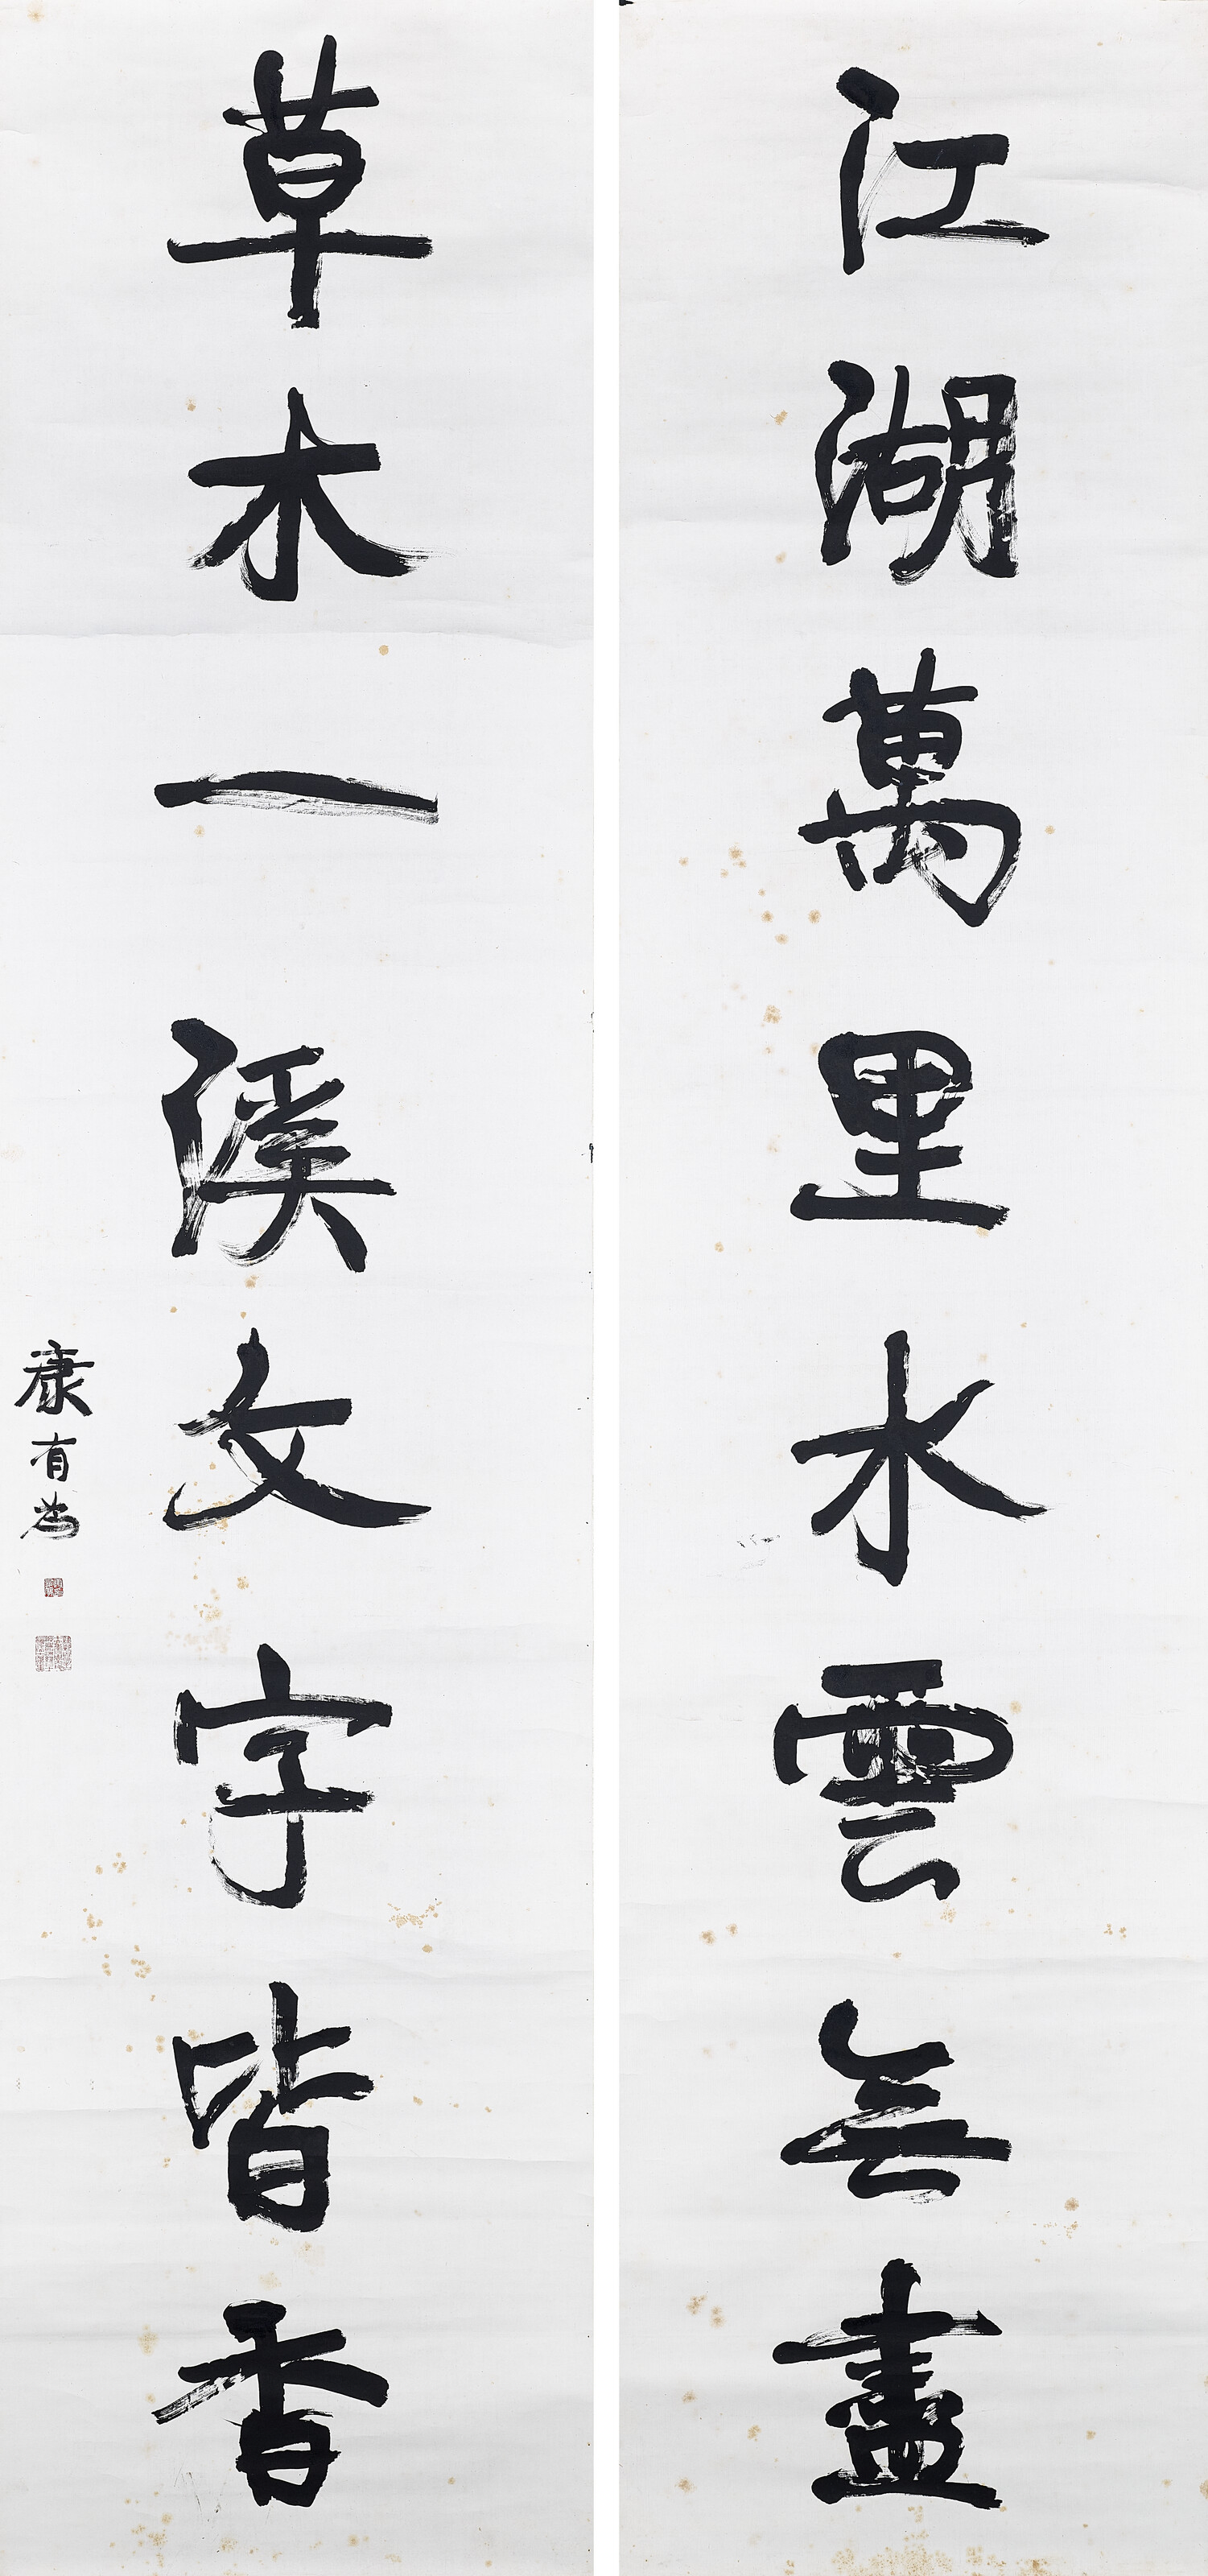 江湖萬里水雲無盡
草木一溪文字皆香
康有為